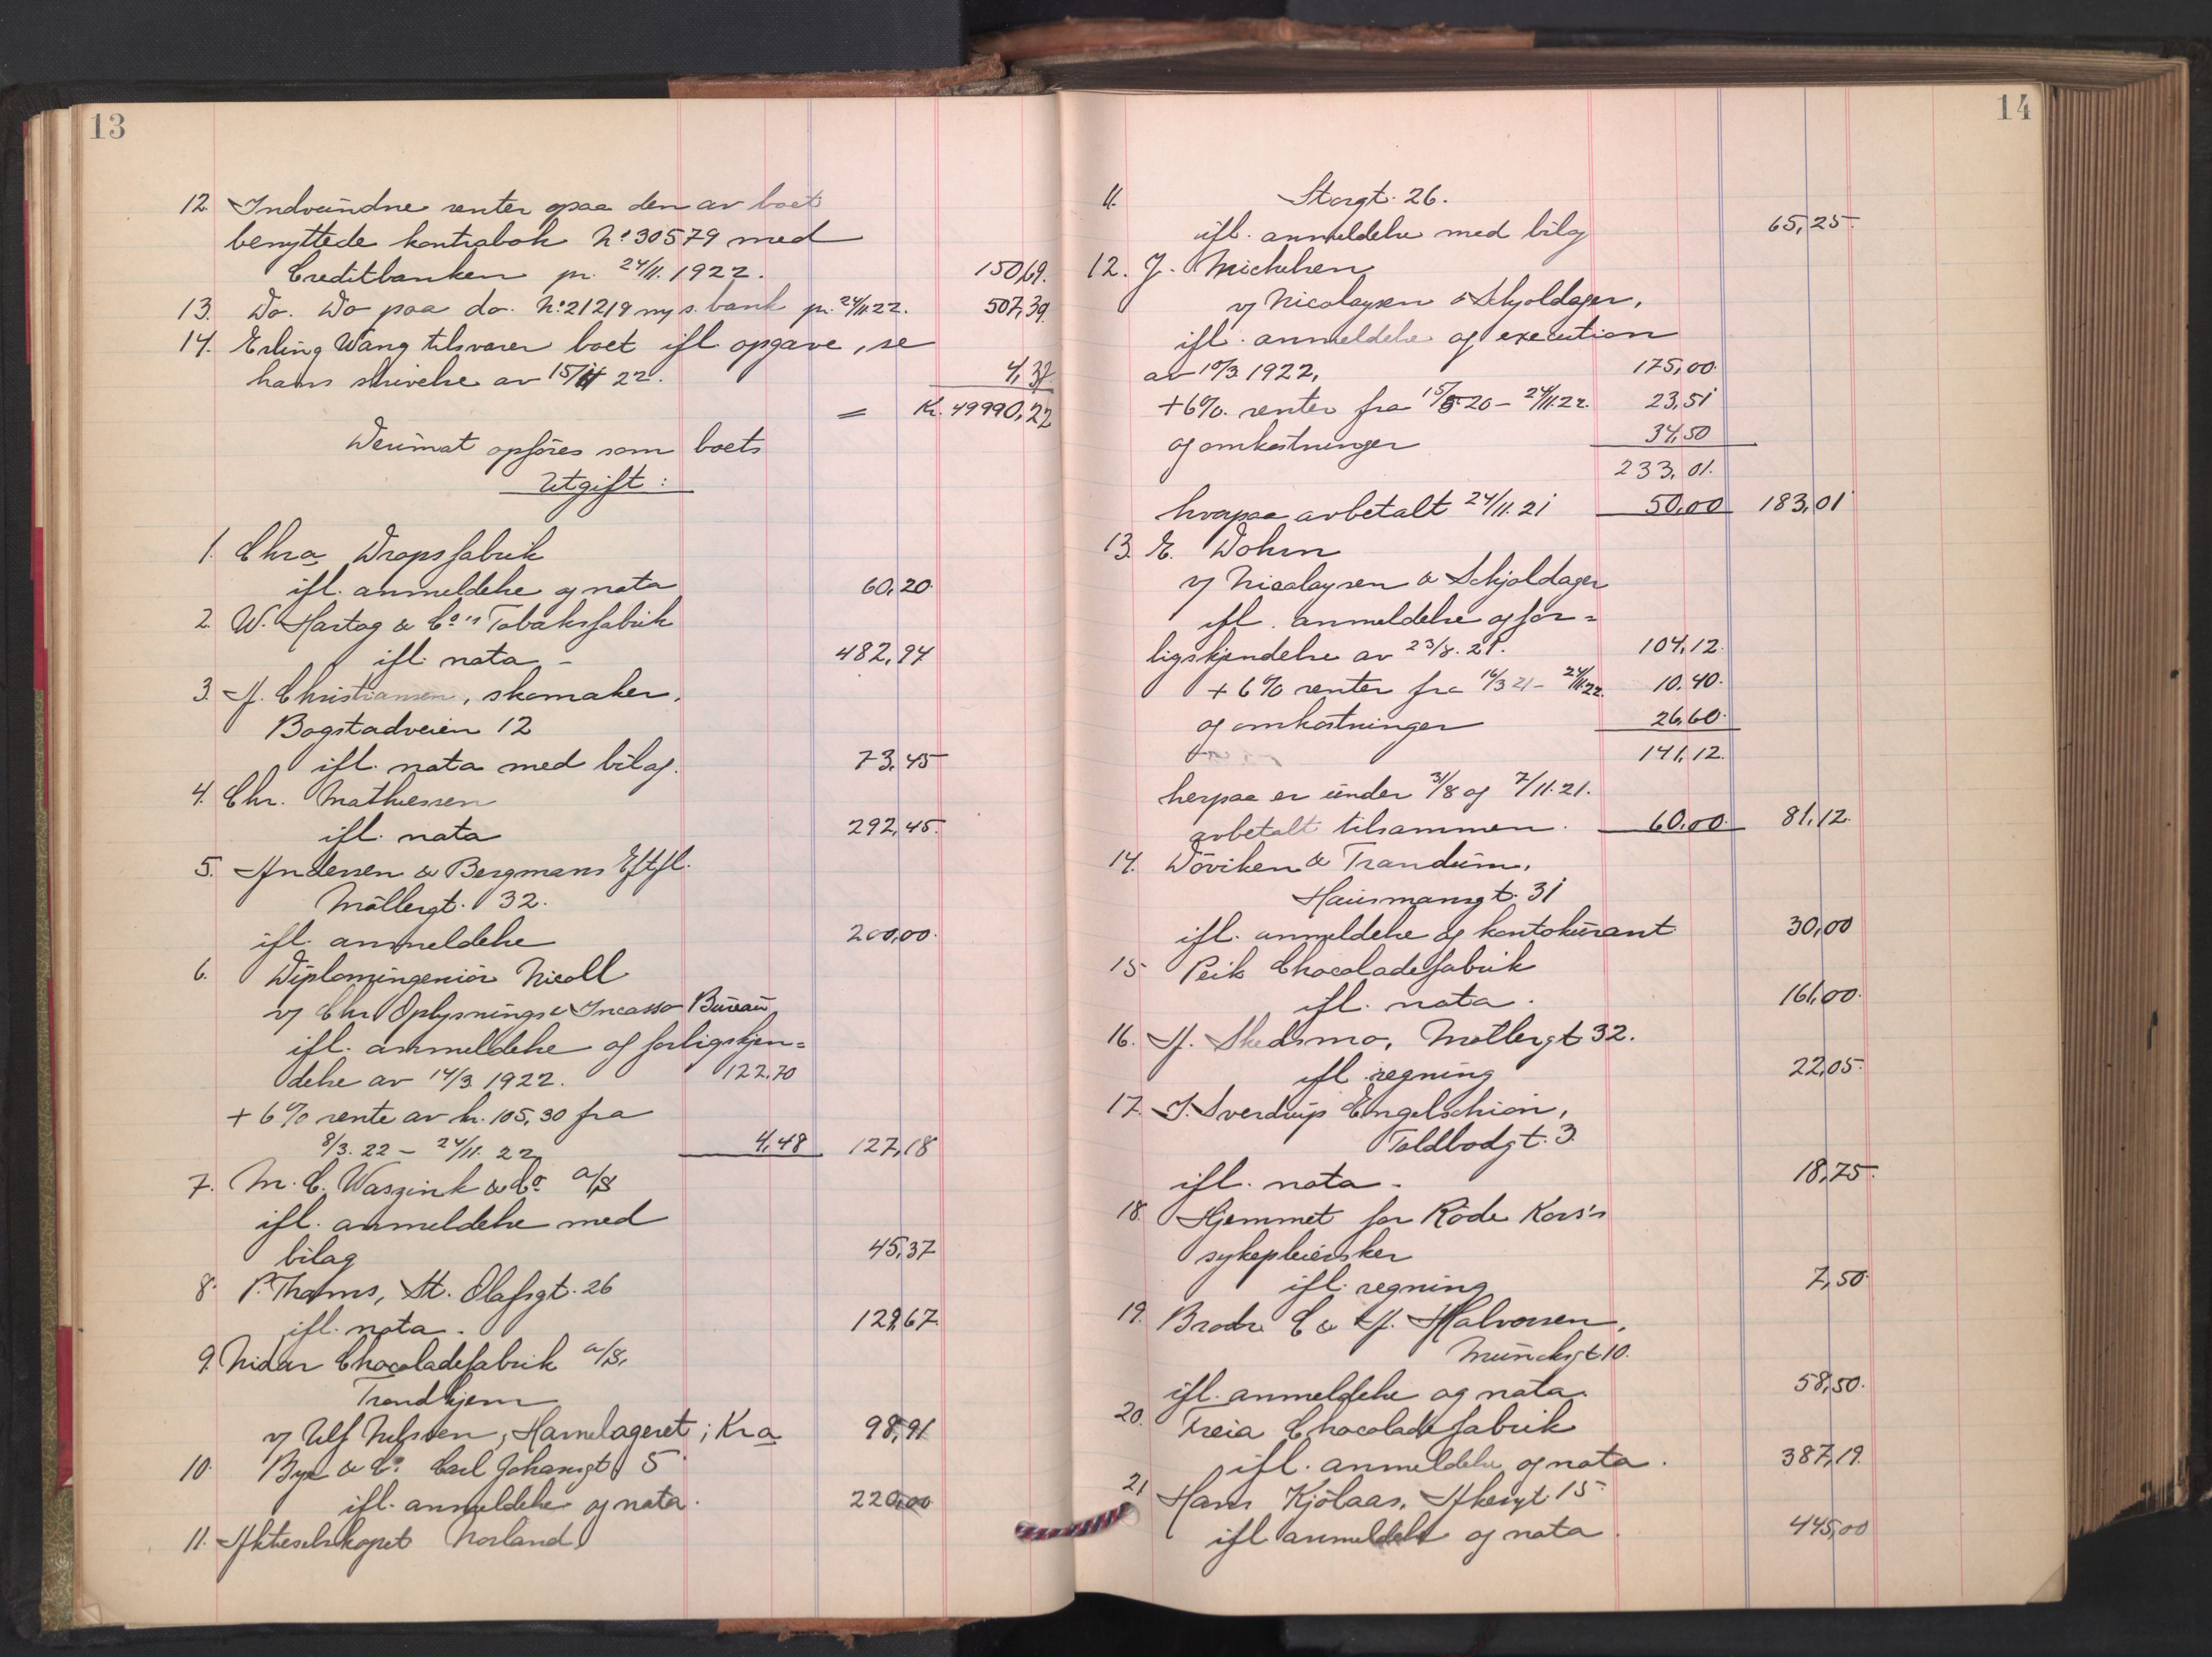 13
12. Indvundne renter paa den av boet
benyttede kontrabok No 30579 med
Creditbanken pr. 24/11. 1922. 150,69.
13. Do. Do paa do. No 21219 ny s. bank pr. 24/11 22. 507,39.
14. Erling Wang tilsvarer boet ifl opgave, se
hans skrivelse av 15/11 22. 4,37
= Kr. 49990,22
Derimot opføres som boets
Utgift:
1. Chra Dropsfabrik
ifl. anmeldelse og nota 60,20.
2. W. Hartog & Co's Tobaksfabrik
ifl. nota - 482,94
3. A. Christiansen, skomaker,
Bogstadveien 12
ifl. nota med bilag. 73,45
4. Chr. Mathiessen
ifl. nota 292,45.
5. Andersen & Bergmans Eftfl.
Möllergt. 32.
ifl. anmeldelse 200,00.
6. Diplomingeniør Nicoll
v/ Chr. Oplysnings & Incasso Bureau
ifl. anmeldelse og forligskjen=
delse av 14/3 1922. 122,70
+ 6% rente av kr. 105,30 fra
8/3. 22 - 24/11. 22 4,48 127,18
7. M. C. Waszink & Co. A/S
ifl. anmeldelse med
bilag 45,37
8. P. Thams, St. Olafsgt. 26
ifl. nota. 129,67.
9. Nidar Chocoladefabrik A/S,
Trondhjem
v/ Ulf Nelsven, Havnelageret, Kra 98,91
10. Bye & Co. Carl Johansgt 5
ifl. anmeldelse og nota. 220,00
11. Aktieselskapet Norland,
14
11. Storgt. 26.
ifl. anmeldelse med bilag 65,25.
12. J. Michelsen
v/ Nicolaysen & Schjoldager,
ifl. anmeldelse og execution
av 10/3 1922, 175,00.
+ 6% renter fra 15/8 20 - 24/11. 22. 23,51
og omkostninger 34,50
233,01.
hvorpaa avbetalt 24/11. 21 50,00 183,01
13. E. Dohrn
v/ Nicolaysen & Schjoldager
ifl. anmeldelse og for=
ligskjendelse av 23/8. 21. 104,12.
+ 6% renter fra 16/3 21 - 24/11. 22. 10,40.
og omkostninger 26,60.
141,12.
herpaa er under 31/8 og 7/11. 21.
avbetalt tilsammen. 60,00. 81,12.
14. Döviken & Trandum,
Hausmansgt. 31
ifl. anmeldelse og kontokurant 30,00
15 Peik Chocoladefabrik
ifl. nota. 161,00.
16. A. Skedsmo, Möllergt 32.
ifl. regning 22,05.
17. J. Sverdrup Engelschiøn,
Toldbodgt. 3.
ifl. nota - 18,75.
18. Hjemmet for Röde Kors's
sykepleiersker
ifl. regning 7,50.
19. Brødr. C & A. Halvorsen,
Munchsgt 10.
ifl. anmeldelse og nota. 58,50.
20. Freia Chocoladefabrik
ifl. anmeldelse og nota. 387,19.
21 Hans Kjölaas, Akersgt. 15
ifl anmeldelse og nota. 445,00